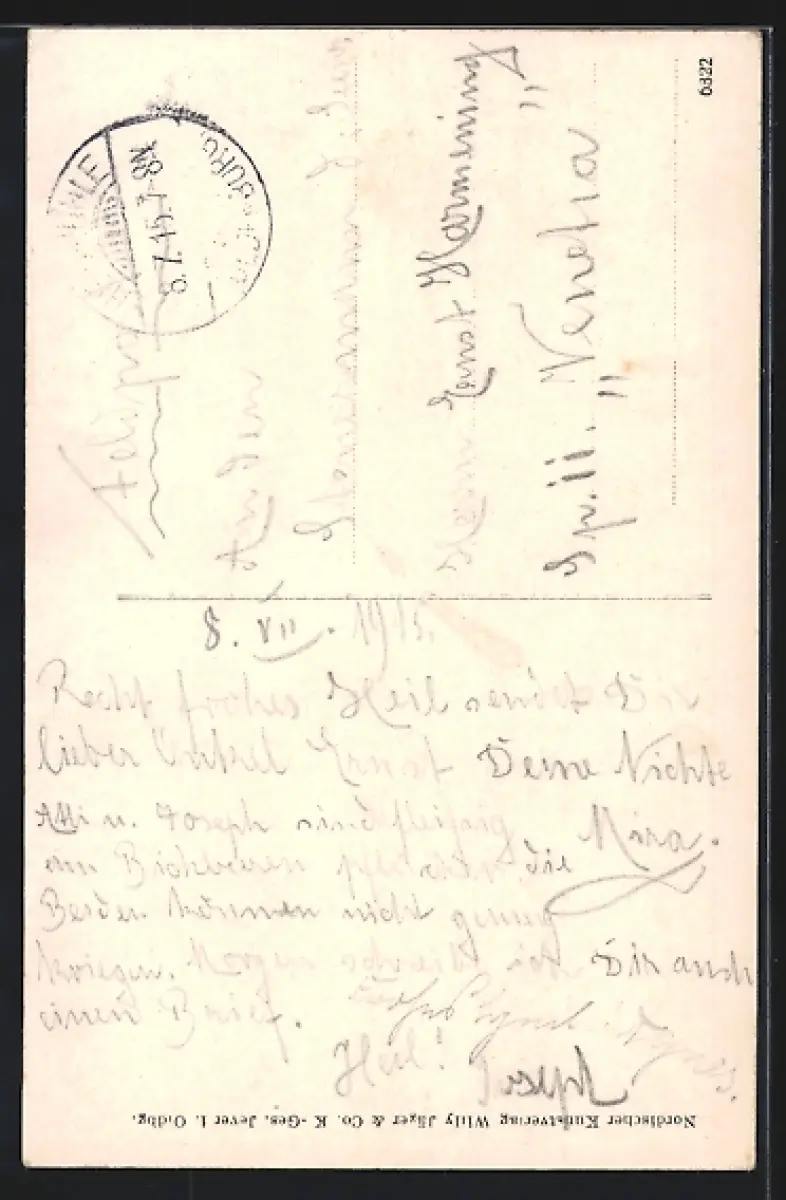 8. VII. 1915.
Recht frohes Heil sendet Dir
lieber Onkel Ernst Deine Nichte
Mira.
Atti u. Joseph sind fleißig
am Bickbeeren pflücken, die
Beiden können nicht genug
kriegen. Morgen schreibt ich Dir auch
einen Brief.
Heil! Joseph
Feldpost
An den
Herrn Ernst Harmening
Sp. II. "Venetia"
8.7.15.7-8N
6322
Nordischer Kunstverlag Willy Jäger & Co. K.-Ges. Jever i. Oldbg.